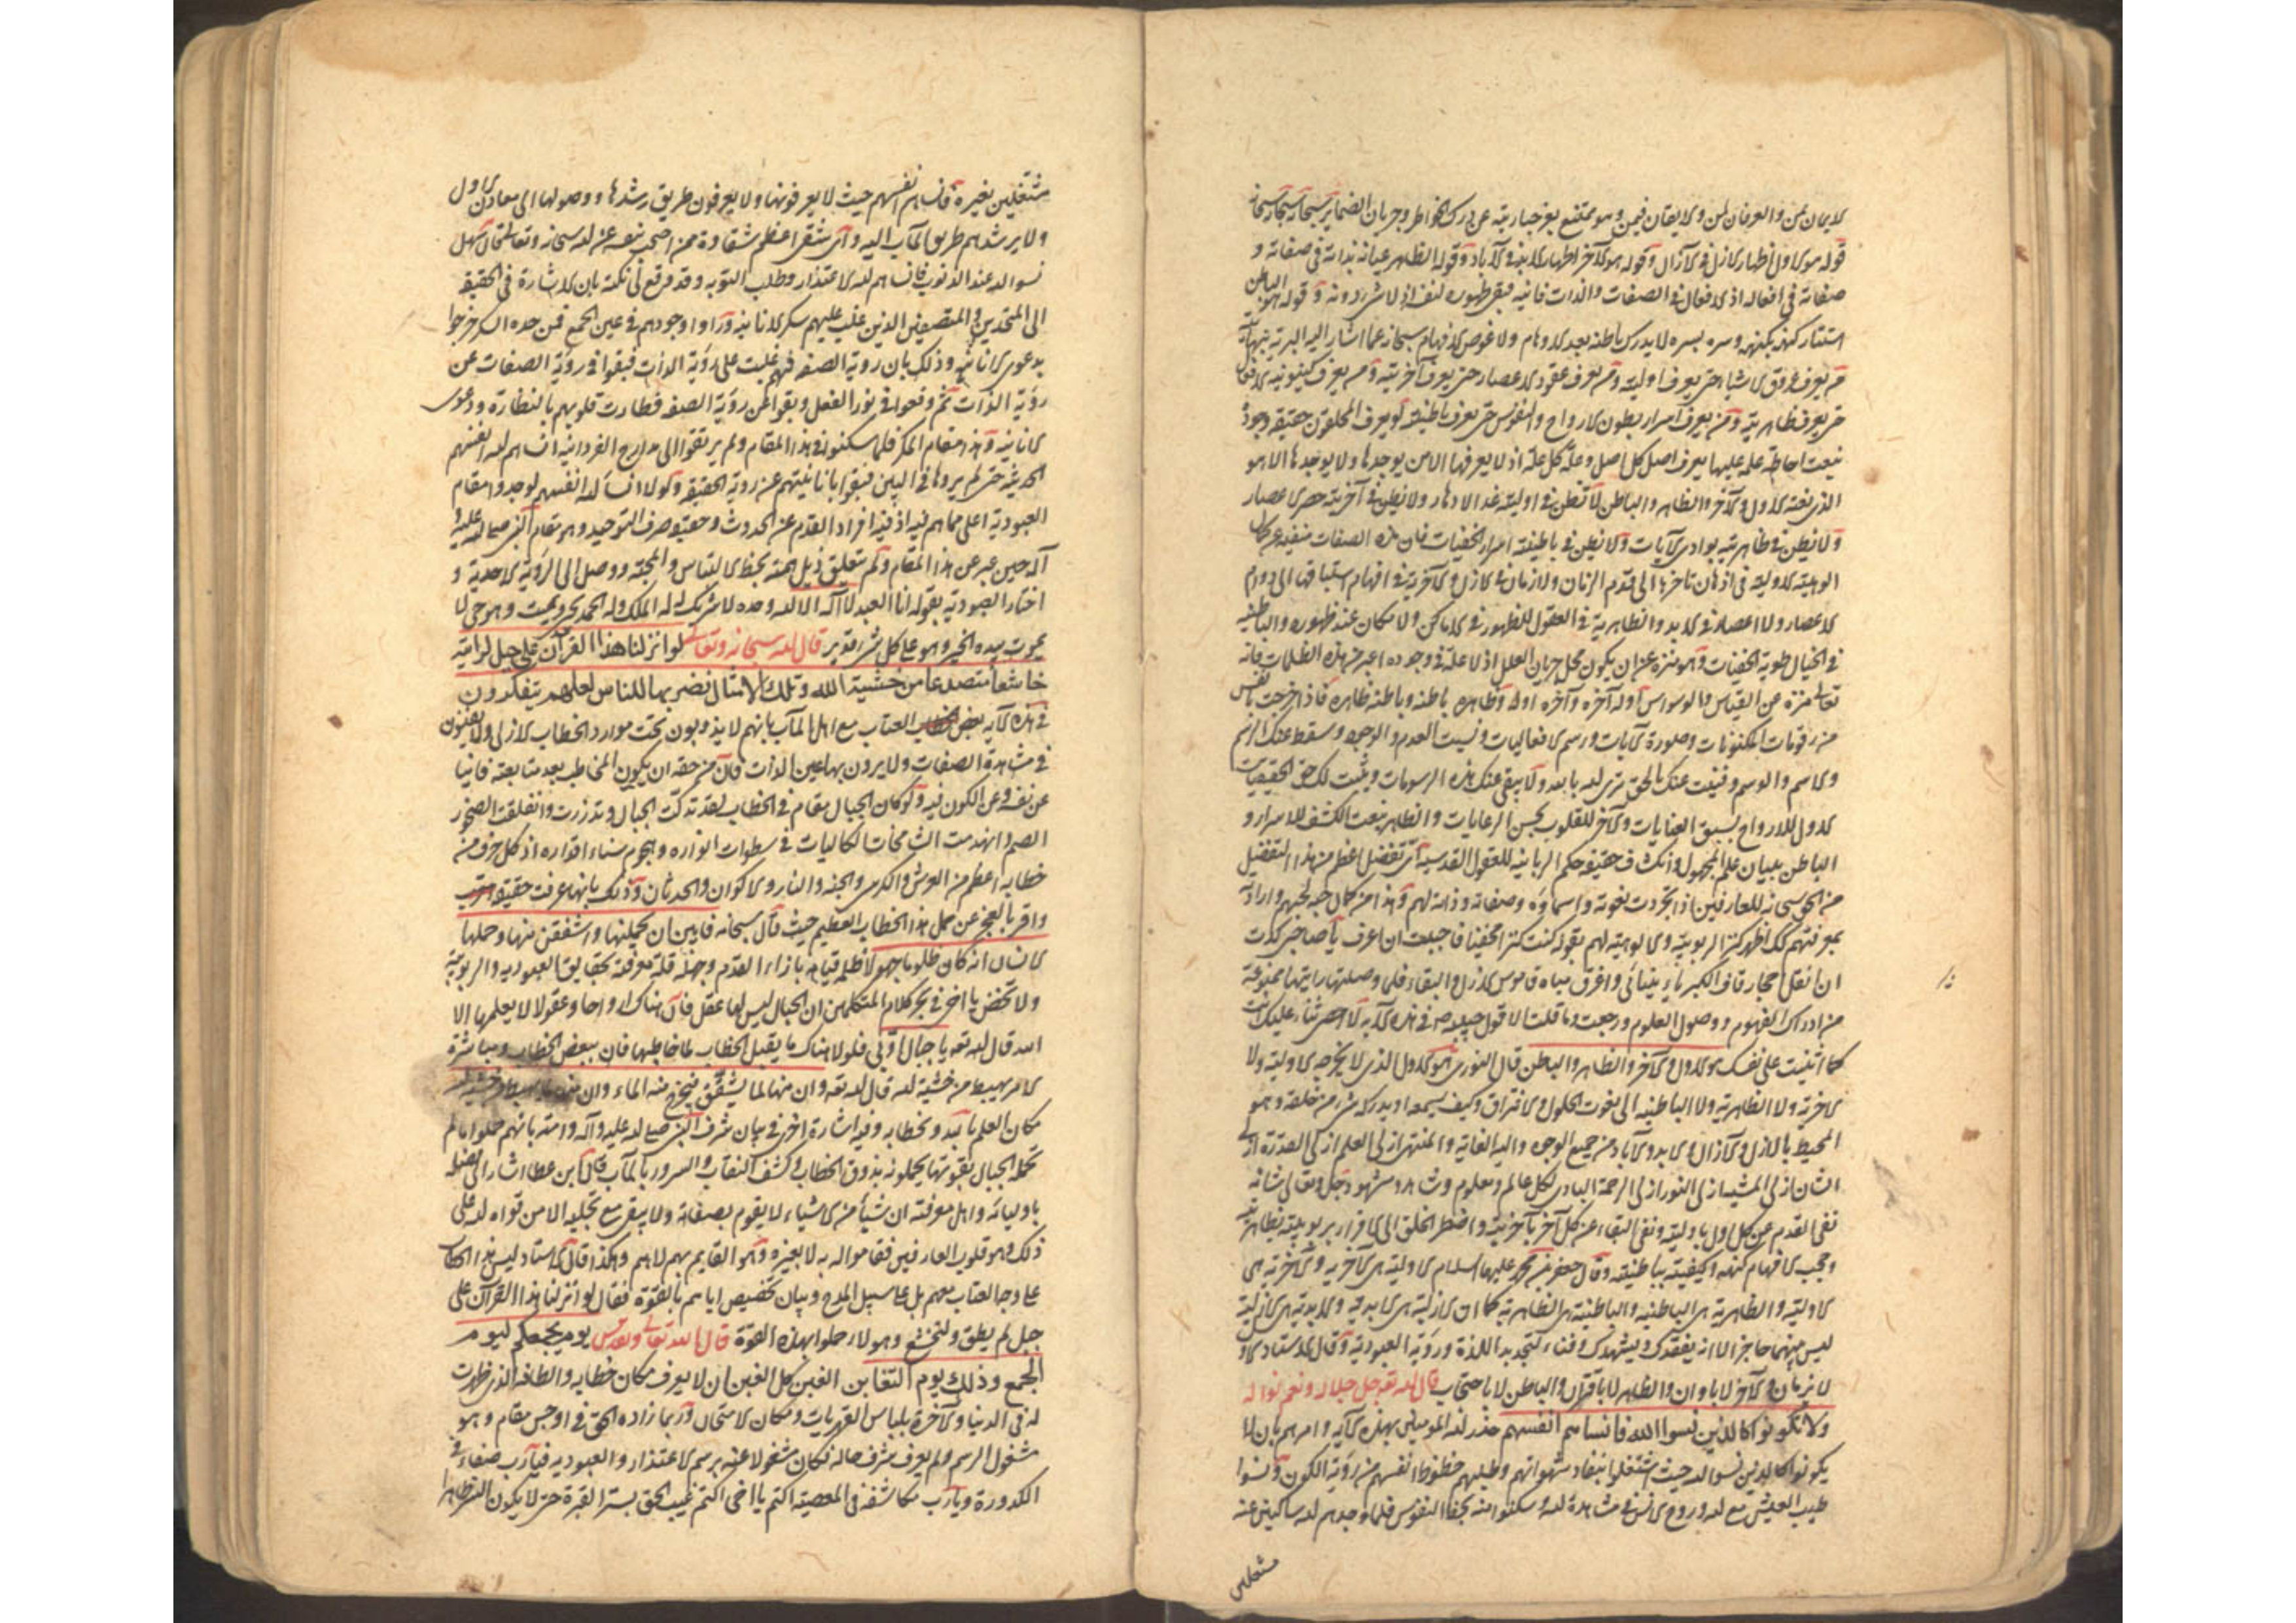 قوله هو الاول اظهار الازل في الآزال وقوله هو الآخر اظهار الابد في الآباد وقوله الظاهر عيانه بذاته في صفاته و
صفاته في افعاله اذ الافعال في الصفات والذات فانية فبقي ظهوره لنفسه اذ لا شيء دونه وقوله الباطن
استتار كنهه بكنهه وسره بسره لا يدرك باطنه بعد الاوهام ولا غوص الافهام سبحانه عما اشار اليه البرية
من يعرف فوق الاشياء حتى يعرف اوليته ومن يعرف عقود الاعصار حتى يعرف آخريته ومن يعرف كينونية
حتى يعرف ظاهريته ومن يعرف اسرار بطون الارواح والنفوس حتى يعرف باطنيته لو يعرف المخلوق حقيقة وجود
بنعت احاطة علمه عليها يعرف اصل كل اصل وعلة كل علة اذ لا يعرفها الا من يوجدها ولا يوجدها الا هو
الذي نعته الاول والآخر والظاهر والباطن لا تظن في اوليته عد الادهار ولا تظن في آخريته حصر الاعصار
ولا تظن في ظاهريته بوادي الآيات ولا تظن في باطنيته اسرار الخفيات فان هذه الصفات
الوهية الاولية في اذهان تأخرها الى قدم الزمان ولا زمان في الازل والآخرية في افهام استباقها الى دوام
الاعصار ولا اعصار في الابد والظاهرية في العقول للظهور في الاماكن ولا مكان عند ظهوره والباطنية
في الخيال طوية الخفيات وهو منزه عن ان يكون محل جريان العلل اذ لا علة في وجوده اعبر من هذه الظلمات فانه
تعالى منزه عن القياس والوسواس اوله آخره وآخره اوله وظاهره باطنه وباطنه ظاهره فاذا خرجت بالنفس
من رقومات المكنونات وصلورة الآيات ورسم الافعاليات ونسيت العدم والوجود وسقط عنك الرسم
والاسم والوسم وفنيت عنك بالحق ترى الله بالله ولا يبقى عنك هذه الرسومات ويثبت لك حق الحقيقيات
الاول للارواح بسبق العنايات والآخر للقلوب بحسن الرعايات والظاهر بنعت الكشف للاسرار و
الباطن ببيان علم المجهول وانكشاف حقيقة حكم الربانية للعقول القدسية اي تفضل اعظم من هذا التفضيل
من الحق سبحانه للعارفين اذا تجردت نعوته واسماؤه وصفاته وذاته لهم وهذا من كمال حبه لحبهم واراد
بمعرفتهم كل اظهر كنز الربوبية والالوهية لهم بقوله كنت كنزا مخفيا فاحببت ان اعرف يا صاحبي كدت
ان انقل احجار قاف الكبرياء واغرق مياه قاموس الازل والبقاء فلما وصلتها رايتها ممنوعة
من ادراك الفهوم ووصول العلوم ورجعت وما قلت الا قول حبيبه في هذه الآية لا احصي ثناء عليك انت
كما اثنيت على نفسك هو الاول والآخر والظاهر والباطن قال النوري هو الاول الذي لا يخرجه الاولية ولا
الآخرية ولا الظاهرية ولا الباطنية الى نعوت الحلول والافتراق وكيف يسمه او يدركه شيء من خلقه وهو
المحيط بالازل والآزال والابد والآباد من جميع الوجوه واليه الغاية والمنتهى ازلي العلم ازلي القدرة ازلي
الشان ازلي المشية ازلي النور ازلي الرحمة البادي لكل عالم ومعلوم وشاهد ومشهود وجل وتعالى شانه
نفى القدم عن كل اول باوليته ونفى البقاء عن كل آخر بآخريته واضطر الخلق الى الاقرار بربوبيته بظاهريته
وحجب الافهام كنهه وكيفيته بباطنيته وقال جعفر بن محمد عليهما السلام الاولية هي الآخرية والآخرية هي
الاولية والظاهرية هي الباطنية والباطنية هي الظاهرية كما ان الازلية هي الابدية والابدية هي الازلية
ليس بينهما حاجز الا انه يفقدك ويشهدك وفناء لتجديد اللذة ورؤية العبودية وقال الاستاد الاول
لا بزمان والآخر لا باوان والظاهر لا باقتران والباطن لا باحتجاب قال الله تعه جل جلاله ونعم نواله
ولا تكونوا كالذين نسوا الله فانساهم انفسهم حذر الله المومنين بهذه الآية وامرهم بان لا
يكونوا كالذين نسوا الله حيث اشتغلوا بنفاد شهواتهم وطلبهم حظوظ انفسهم من رؤية الكون ونسوا
طيب العيش مع الله وروح الانس في مشاهدة الله وسكنوا منه بحظ النفوس فلما وجدهم الله ساكنين عنه
مشتغلين
مشتغلين بغيره فانساهم انفسهم حيث لا يعرفونها ولا يعرفون طريق رشدها ووصولها الى معادن الاول
ولا يرشدهم طريق المآب اليه واي شقي اعظم شقاوة ممن اصحب نفسه عن الله سبحانه وتعالى قال سهل
نسوا الله عند الذنوب فانساهم الله الاعتذار وطلب التوبة وقد وقع لي نكتة بان الاشارة في الحقيقة
الى المتحدين والمتصفين الذين غلب عليهم سكر الانانية وراوا وجودهم في عين الجمع فمن حده السكر خرجوا
بدعوى الانانية وذلك بان رؤية الصفة فيهم غلبت على رؤية الذات فبقوا في رؤية الصفات عن
رؤية الذات ثم وقعوا في نور الفعل وبقوا عن رؤية الصفة فطارت قلوبهم بالنظارة ودعوى
الانانية وهذا مقام المكر فلما سكنوا في هذا المقام ولم يرتقوا الى مدارج الفردانية انساهم الله انفسهم
الحديثة حتى لم يروها في البين فبقوا بانانيتهم عن رؤية الحقيقة ولولا انساء الله انفسهم لوجدوا مقام
العبودية اعلى مما هم فيه اذ فيه افراد القدم عن الحدوث وحقيقة صرف التوحيد وهو مقام النبي صلى الله عليه و
آله حين عبر عن هذا المقام ولم يتعلق ذيل همته بحظ الالتباس والمحبة ووصل الى الرؤية الاحدية و
اختار العبودية بقوله انا العبد لا اله الا الله وحده لا شريك له له الملك وله الحمد يحيي ويميت وهو حي لا
يموت بيده الخير وهو على كل شيء قدير قال الله سبحانه وتعالى لو انزلنا هذا القرآن على جبل لرايته
خاشعا متصدعا من خشية الله وتلك الامثال نضربها للناس لعلهم يتفكرون
في هذه الآية بعض العتاب مع اهل المآب بانهم لا يذوبون تحت موارد الخطاب الازلي ولا يفنون
في مشاهدة الصفات ولا يرون بها عين الذات فان من حقه ان يكون المخاطب بعد متابعته فانيا
عن نفسه وعن الكون فيه ولو كان الجبال مقام في الخطاب لقد تدكت الجبال وتذررت وانفلقت الصخور
الصم وانهدمت الشامخات العاليات في سطوات انواره وهجوم سناء اقداره اذ كل حرف من
خطابه اعظم من العرش والكرسي والجنة والنار والاكوان والحدثان وذلك بانها عرفت حقيقة
واقر بالعجز عن حمل هذا الخطاب العظيم حيث قال سبحانه فابين ان يحملنها واشفقن منها وحملها
الانسان انه كان ظلوما جهولا ظلمه قيامه بازاء القدم وجهله قلة معرفته بحقايق العبودية والربوبية
ولا تخض يا اخي في بحر كلام المتكلمين ان الجبال ليس لها عقل فان هناك ارواحا وعقولا لا يعلمها الا
الله قال الله تعه يا جبال اوبي فلولا هناك ما يقبل الخطاب لما خاطبها فان ببعض الخطاب ومباشرة
الامر يهبط من خشية الله قال الله تعه وان منها لما يشقق فيخرج منه الماء وان منها لما يهبط من خشية الله
مكان العلم بالله وبخطابه وفيه اشارة اخرى في بيان شرف النبي صلى الله عليه وآله وامته بانهم حملوا ما لم
تحمله الجبال بقوتها يحملونه بذوق الخطاب وكشف النقاب والسرور بالمآب قال ابن عطا اشار الى فضله
باوليائه واهل معرفته ان شيئا من الاشياء لا يقوم بصفاته ولا يبقى مع تجليه الا من قواه الله على
ذلك وهو قلوب العارفين فقاموا له به لا بغيره وهو القايم بهم لا هم وهكذا قال الاستاد ليس هذا الخطاب
على وجه العتاب معهم بل على سبيل المدح وبيان تخصيص اياهم بالقوة فقال لو انزلنا هذا القرآن على
جبل لم يطق ولتخشع وهولاء حملوا بهذه القوة قال الله تعالى وتقدس يوم يجمعكم ليوم
الجمع وذلك يوم التغابن الغبن كل الغبن ان لا يعرف مكان خطابه والطافه الذي ظهرت
له في الدنيا والآخرة بلباس القهريات ومكان الامتحان وربما زاده الحق في اوحش مقام وهو
مشغول الرسم ولم يعرف شرف حاله فكان مشغولا عنه برسم الاعتذار والعبودية فيا رب صفاء في
الكدورة ويا رب مكاشفة في المعصية اكتم يا اخي اكتم غيب الحق بستر الغيرة حتى لا يكون